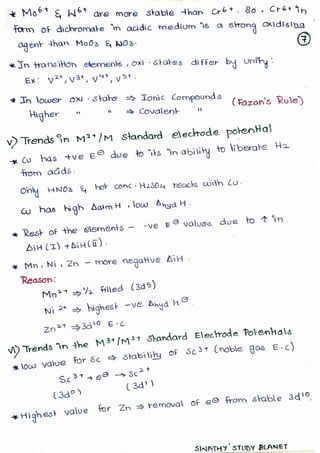 * Mo6+ & W6+ are more stable than Cr6+. So, Cr6+ in
form of dichromate in acidic medium is a strong oxidising
agent than MoO3 & WO3.
7
* In transition elements, oxi. states differ by unity:
Ex: V2+, V3+, V4+, V5+.
* In lower oxi. state ⇒ Ionic Compounds
(Fazan's Rule)
Higher " " ⇒ Covalent "
v) Trends in M2+/M standard electrode potential
* Cu has +ve E⊖ due to its inability to liberate H2
from acids.
Only HNO3 & hot conc. H2SO4 reacts with Cu.
Cu has high ΔatmH, low ΔhydH.
* Rest of the elements - -ve E⊖ values due to ↑ in
ΔiH (I) + ΔiH (ii).
* Mn, Ni, Zn - more negative ΔiH.
Reason:
Mn2+ ⇒ 1/2 filled (3d5)
Ni2+ ⇒ highest -ve ΔhydH⊖.
Zn2+ ⇒ 3d10 E.C
vi) Trends in the M3+/M2+ Standard Electrode Potentials
* low value for Sc ⇒ stability of Sc3+ (noble gas E.C)
Sc3+ + e⊖ → Sc2+
(3d0) (3d1)
* Highest value for Zn ⇒ removal of e⊖ from stable 3d10.
SWATHY'STUDY PLANET